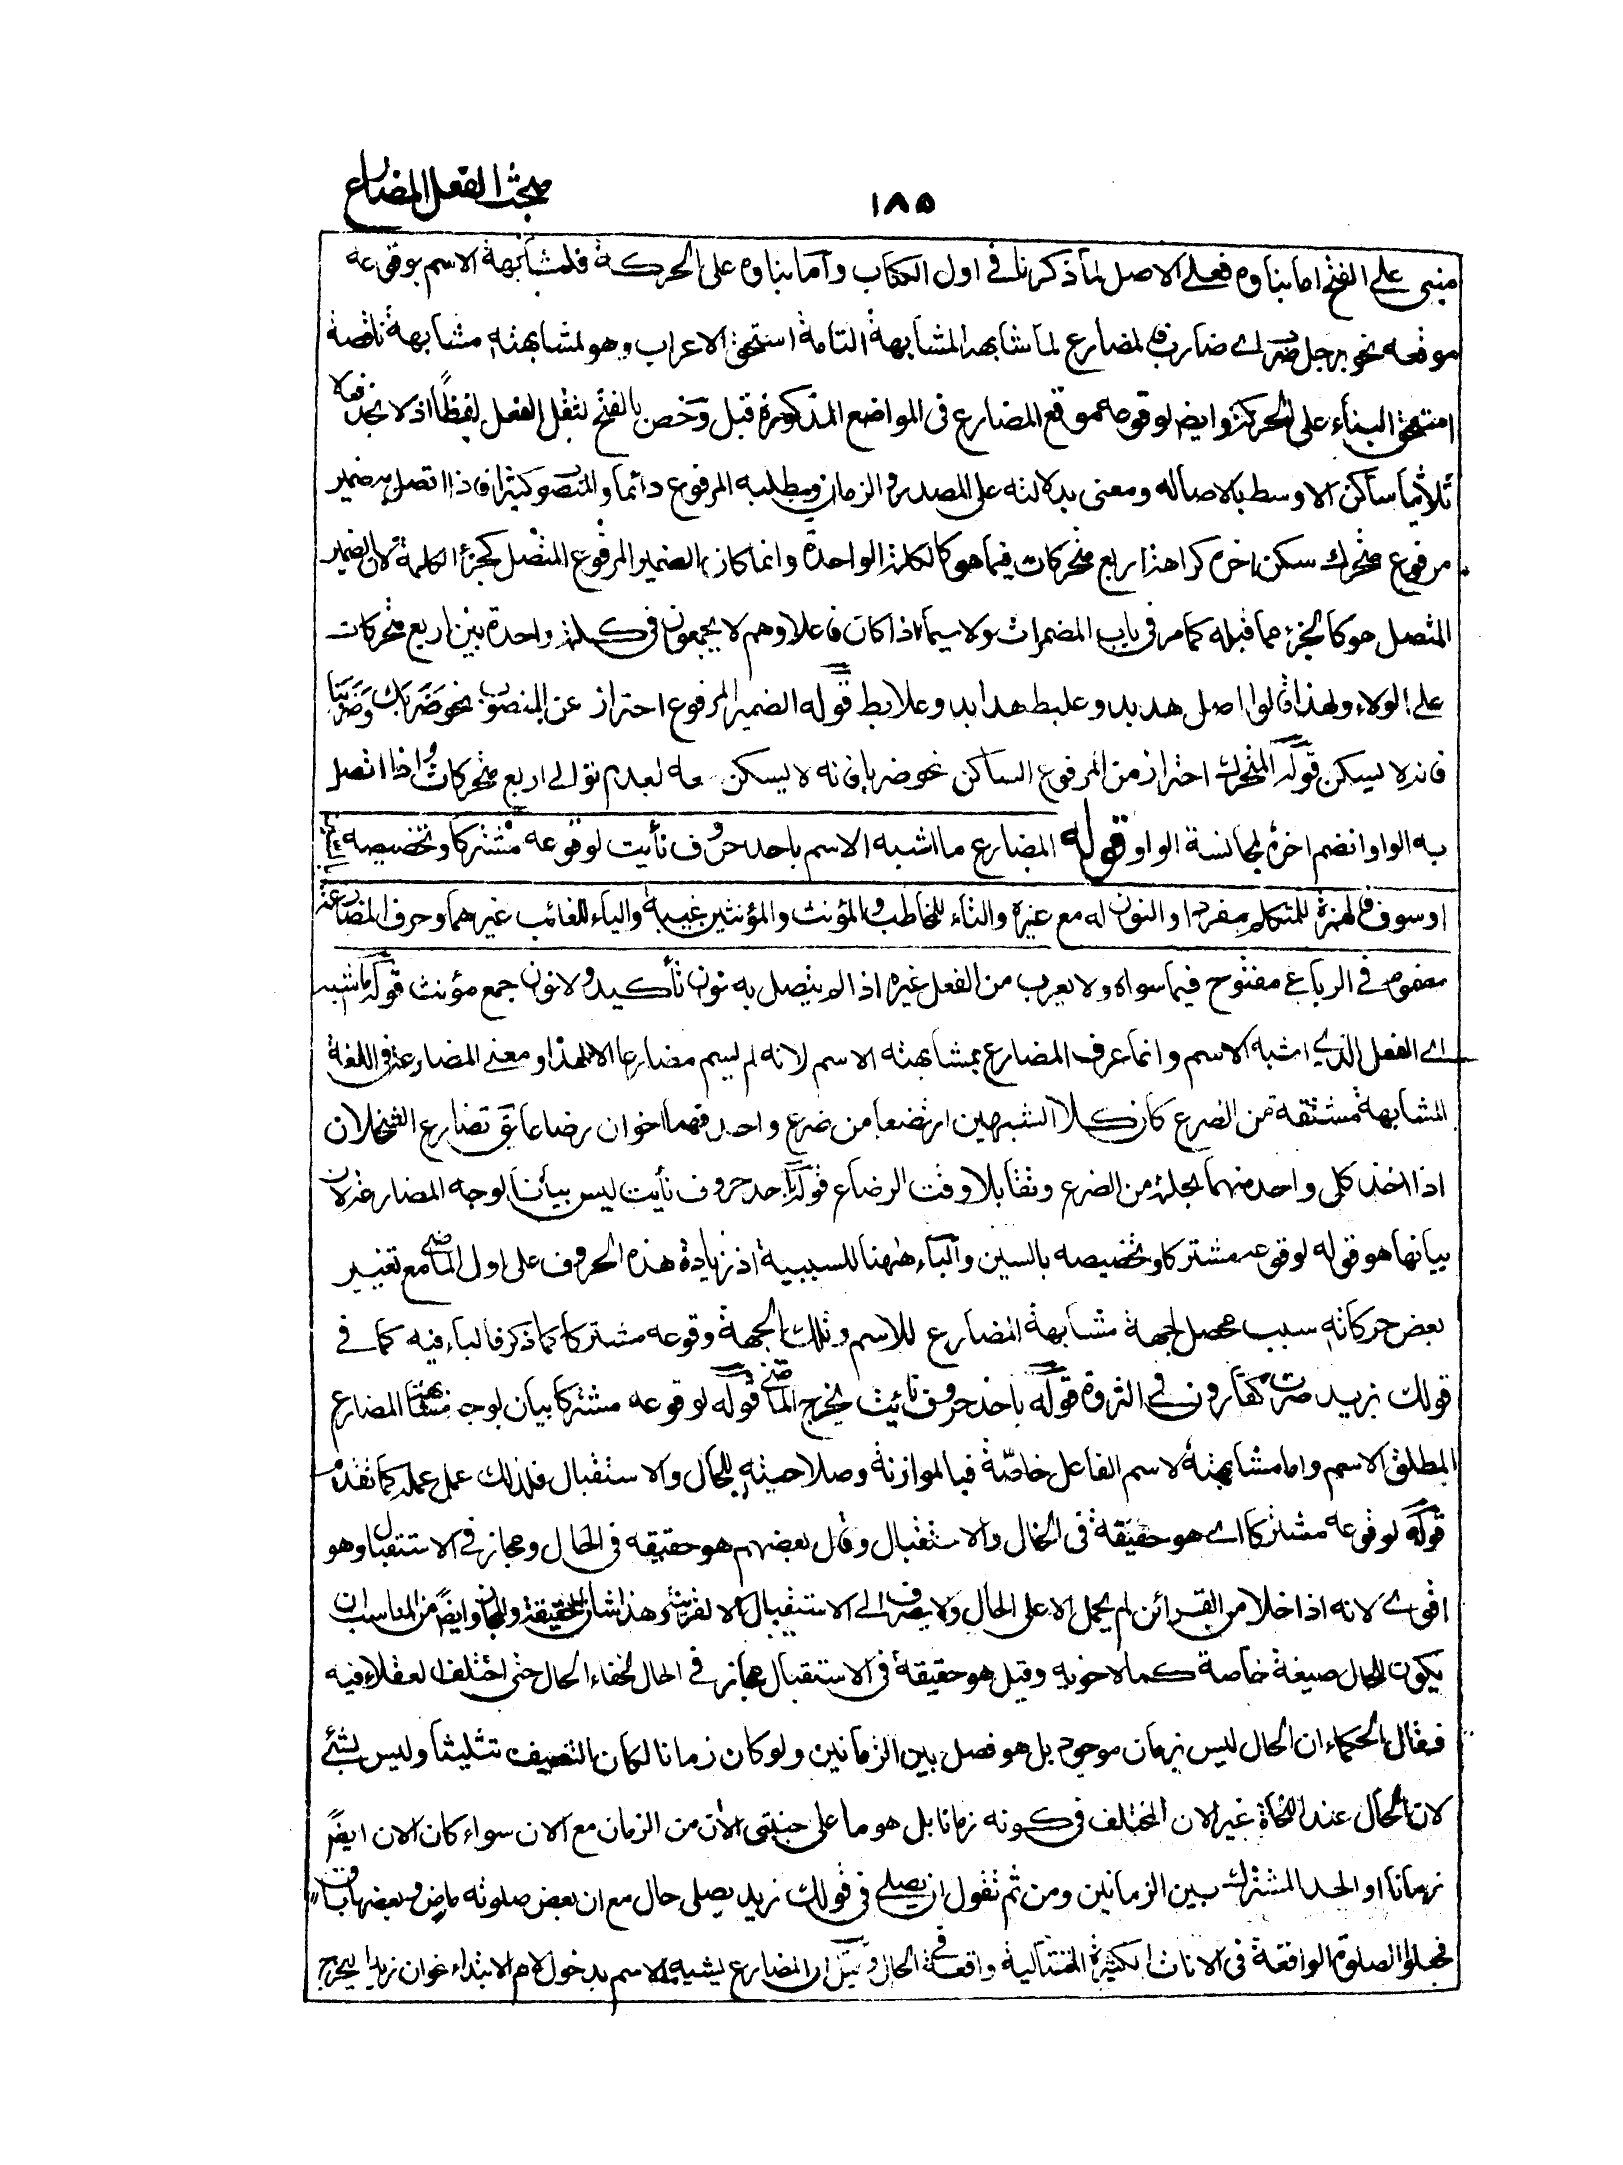 مبحث الفعل المضارع
١٨٥
مبنى على الفتح اما بناوه فعلى الاصل لما ذكرنا فى اول الكتاب وآما بناوه على الحركة فلمشابهة الاسم بوقوعه
موقعه نحو برجل ضرب اى ضارب فالمضارع لما شابهه المشابهة التامة استحق الاعراب وهو لمشابهته مشابهة ناقصة
استحق البناء على الحركة وايضا لوقوعه موقع المضارع فى المواضع المذكورة قبل وخص بالفتح لثقل الفعل لفظًا اذ لا تجد فعلا
ثلاثيا ساكن الاوسط بالاصاله ومعنى بدلالته على المصدر و الزمان وبطلبه المرفوع دائما والمنصوب كثيرا فاذا اتصل به ضمير
مرفوع متحرك سكن اخره كراهة اربع متحركات فيما هو كالكلمة الواحدة وانما كان الضمير المرفوع المتصل كجزء الكلمة لان الضمير
المتصل هو كالجزء مما قبله كما مر فى باب المضمرات ولا سيما اذا كان فاعلا وهم لا يجمعون فى كلمة واحدة بين اربع متحركات
على الولاء ولهذا قالوا اصل هدبد وعلبط هدابد وعلابط قوله الضمير المرفوع احتراز عن المنصوب نحو ضَرَبَك وضَرَبَنا
فانه لا يسكن قوله المتحرك احتراز من المرفوع الساكن نحو ضربا فانه لا يسكن معه لعدم توالى اربع متحركات واذا اتصل
به الواو انضم اخره لمجانسة الواو قوله المضارع ما اشبه الاسم باحد حروف نأيت لوقوعه مشتركا وتخصيصه بالسين
او سوف فالهمزة للمتكلم مفردا و النون له مع غيره والتاء للمخاطب و المؤنث والمؤنثين غيبة والياء للغائب غيرهما وحرف المضارعة
مضموم فى الرباعى مفتوح فيما سواه ولا يعرب من الفعل غيره اذا لم يتصل به نون تأكيد ولا نون جمع مؤنث قوله ما اشبه
اى الفعل الذى اشبه الاسم وانما عرف المضارع بمشابهته الاسم لانه لم يسم مضارعا الا لهذا ومعنى المضارعة فى اللغة
المشابهة مشتقة من الضرع كان كلا الشبيهين ارتضعا من ضرع واحد فهما اخوان رضاعا يق تضارع السخلان
اذا اخذ كل واحد منهما بحلمة من الضرع وتقابلا وقت الرضاع قوله باحد حروف نأيت ليس بيانا لوجه المضارعة لان
بيانها هو قوله لوقوعه مشتركا وتخصيصه بالسين والباء ههنا للسببية اذ زيادة هذه الحروف على اول الماضى مع تغيير
بعض حركاته سبب محصل لجهة مشابهة المضارع للاسم وتلك الجهة وقوعه مشتركا كما ذكر فالباء فيه كما فى
قولك زيد صرت كقارون فى الثروة قوله باحد حروف نائيت يخرج الماضى قوله لوقوعه مشتركا بيان لوجه مشابهة المضارع
المطلق الاسم واما مشابهته لاسم الفاعل خاصّة فبالموازنة وصلاحيته للحال والاستقبال فلذلك عمل عمله كما تقدم
قوله لوقوعه مشتركا اى هو حقيقة فى الحال والاستقبال وقال بعضهم هو حقيقه فى الحال ومجاز فى الاستقبال وهو
اقوى لانه اذا خلا من القرائن لم يحمل الا على الحال ولا يصرف الى الاستقبال الا لقرينة وهذا شان الحقيقة والمجاز وايضا من المناسب ان
يكون للحال صيغة خاصة كما لاخويه وقيل هو حقيقة فى الاستقبال مجاز فى الحال لخفاء الحال حتى اختلف العقلاء فيه
فقال الحكماء ان الحال ليس بزمان موجود بل هو فصل بين الزمانين ولو كان زمانا لكان التنصيف تثليثا وليس بشئ
لان الحال عند النحاة غير الان المختلف فى كونه زمانا بل هو ما على جنبتى الآن من الزمان مع الان سواء كان الان ايضًا
زمانا او الحد المشترك بين الزمانين ومن ثم تقول ان يصلى فى قولك زيد يصلى حال مع ان بعض صلوته ماض و بعضها باق
فجعلوا الصلوة الواقعة فى الانات الكثيرة المتتالية واقعة فى الحال وقيل ان المضارع يشبه الاسم بدخول لام الابتداء نحو ان زيدا ليخرج